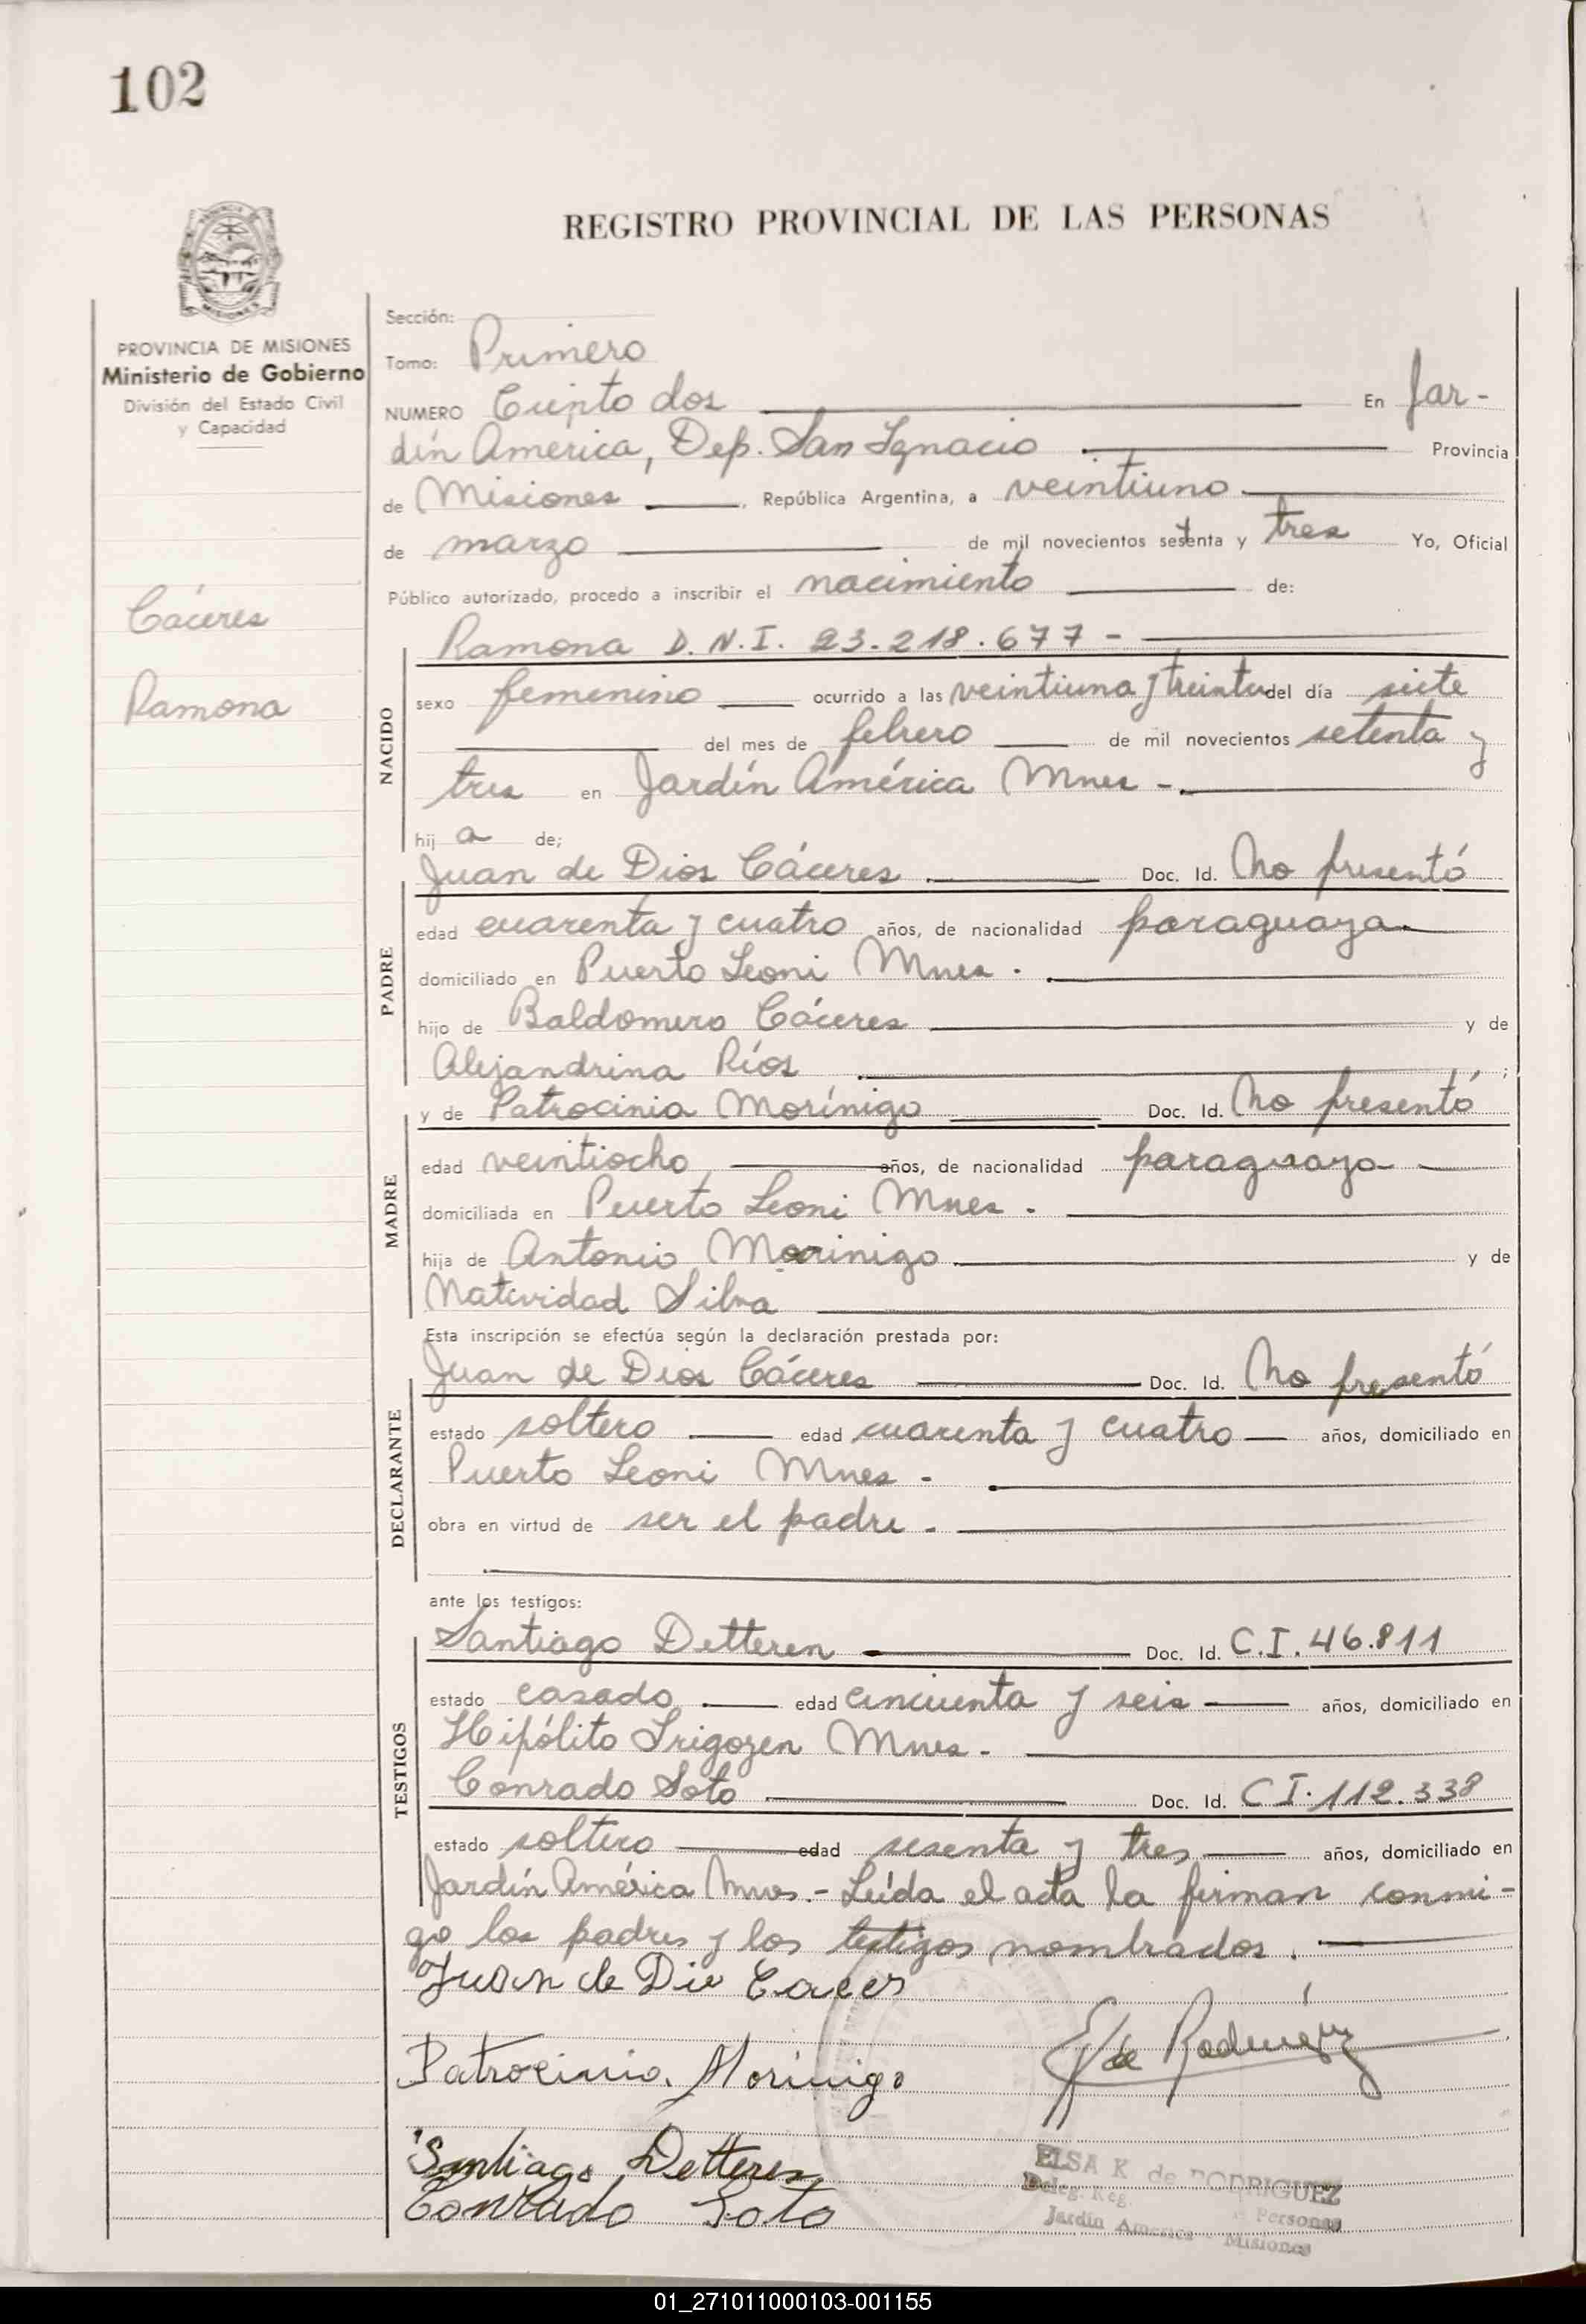 102
REGISTRO PROVINCIAL DE LAS PERSONAS
PROVINCIA DE MISIONES
Ministerio de Gobierno
División del Estado Civil
y Capacidad
Cáceres
Ramona
Sección:
Tomo: Primero
NUMERO Ciento dos En Jar-
dín América, Dep. San Ignacio Provincia
de Misiones, República Argentina, a veintiuno
de marzo de mil novecientos setenta y tres Yo, Oficial
Público autorizado, procedo a inscribir el nacimiento de:
Ramona D.N.I. 23.218.677 -
NACIDO
sexo femenino ocurrido a las veintiuna y treinta del día siete
del mes de febrero de mil novecientos setenta y
tres en Jardín América Mnes -.
hij a de;
Juan de Dios Cáceres Doc. Id. No presentó
PADRE
edad cuarenta y cuatro años, de nacionalidad paraguaya.
domiciliado en Puerto Leoni Mnes.
hijo de Baldomero Cáceres y de
Alejandrina Ríos ;
y de Patrocinia Morínigo Doc. Id. No presentó
MADRE
edad veintiocho años, de nacionalidad paraguaya
domiciliada en Puerto Leoni Mnes.
hija de Antonio Morinigo y de
Natividad Silva
Esta inscripción se efectúa según la declaración prestada por:
Juan de Dios Cáceres Doc. Id. No presentó
DECLARANTE
estado soltero edad cuarenta y cuatro años, domiciliado en
Puerto Leoni Mnes -
obra en virtud de ser el padre.
ante los testigos:
Santiago Detteren Doc. Id. C.I. 46.811
TESTIGOS
estado casado edad cincuenta y seis años, domiciliado en
Hipólito Irigoyen Mnes -
Conrado Soto Doc. Id. C I. 112.338
estado soltero edad sesenta y tres años, domiciliado en
Jardín América Mnes.- Leída el acta la firman conmi-
go los padres y los testigos nombrados.
Juan de Dio Cacer
Patrocinia Morínigo
E K de Rodriguez
Santiago Detteren
Conrado Soto
ELSA K de RODRIGUEZ
Deleg. Reg. Personas
Jardín America - Misiones
01_271011000103-001155